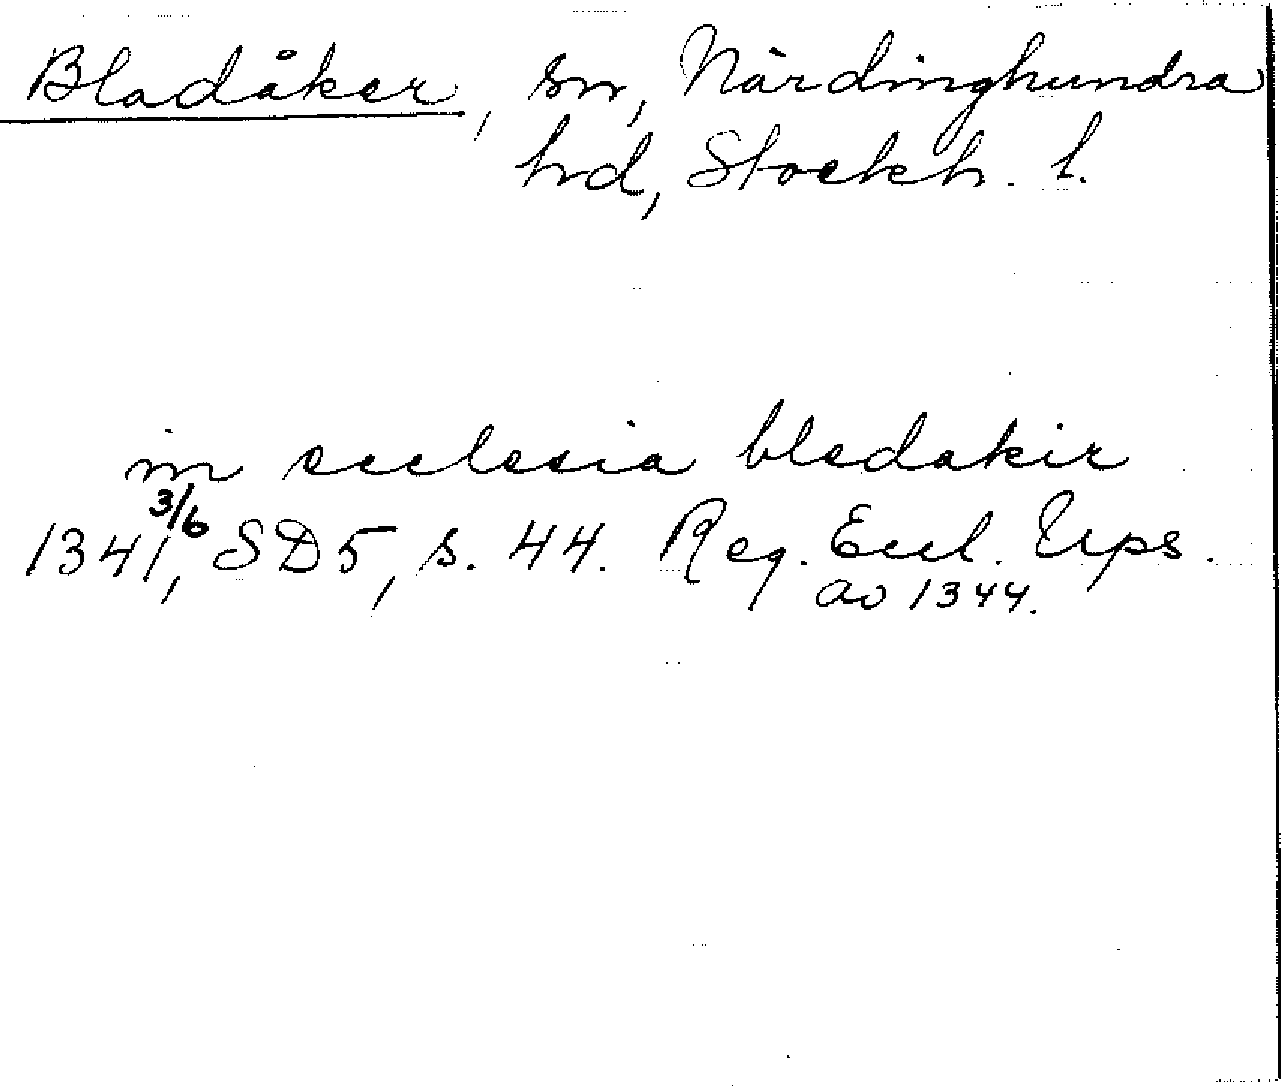 Bladåker, sn, Närdinghundra
hrd, Stockh. l.
in ecclesia bledakir
1341 3/6, SD5, s. 44. Reg. Eccl. Ups.
av 1344.